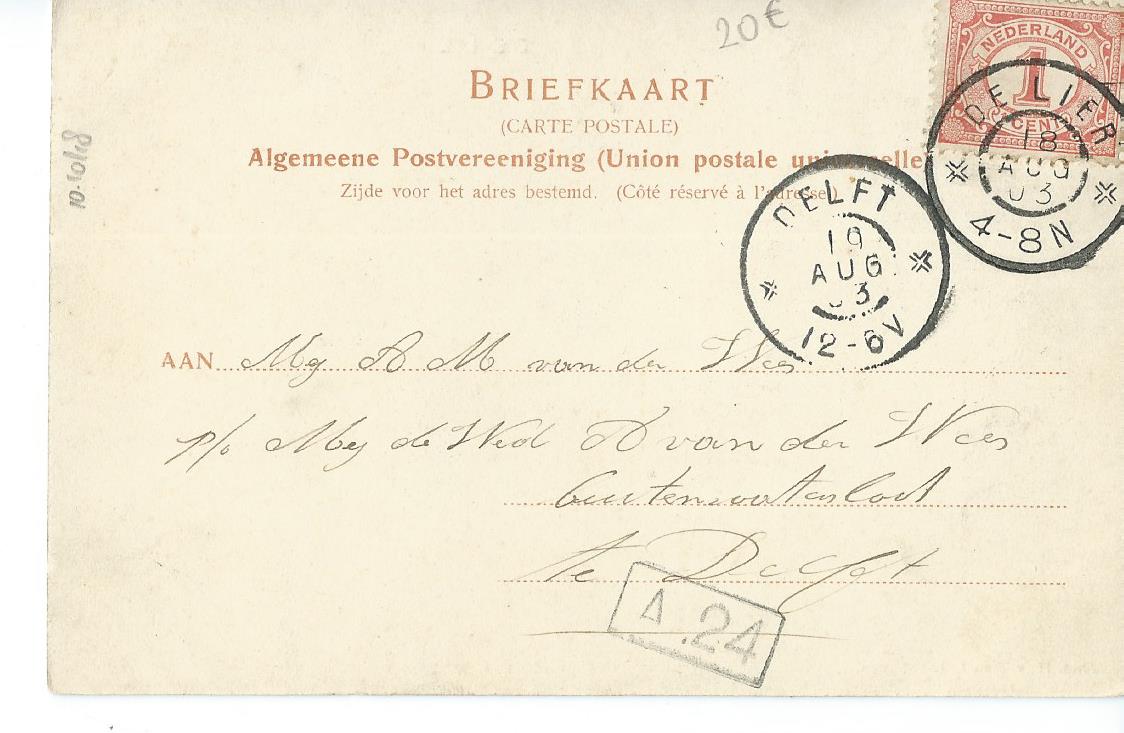 20€
NEDERLAND
1
CENT
BRIEFKAART
(CARTE POSTALE)
Algemeene Postvereeniging (Union postale universelle)
Zijde voor het adres bestemd. (Côté réservé à l'adresse.)
DE LIER
18
AUG
03
4-8N
DELFT
19
AUG
03
12-6V
AAN Mej A M van der Wees
p/o Mej de Wed A van der Wees
Buitenwatersloot
te Delft
A.24